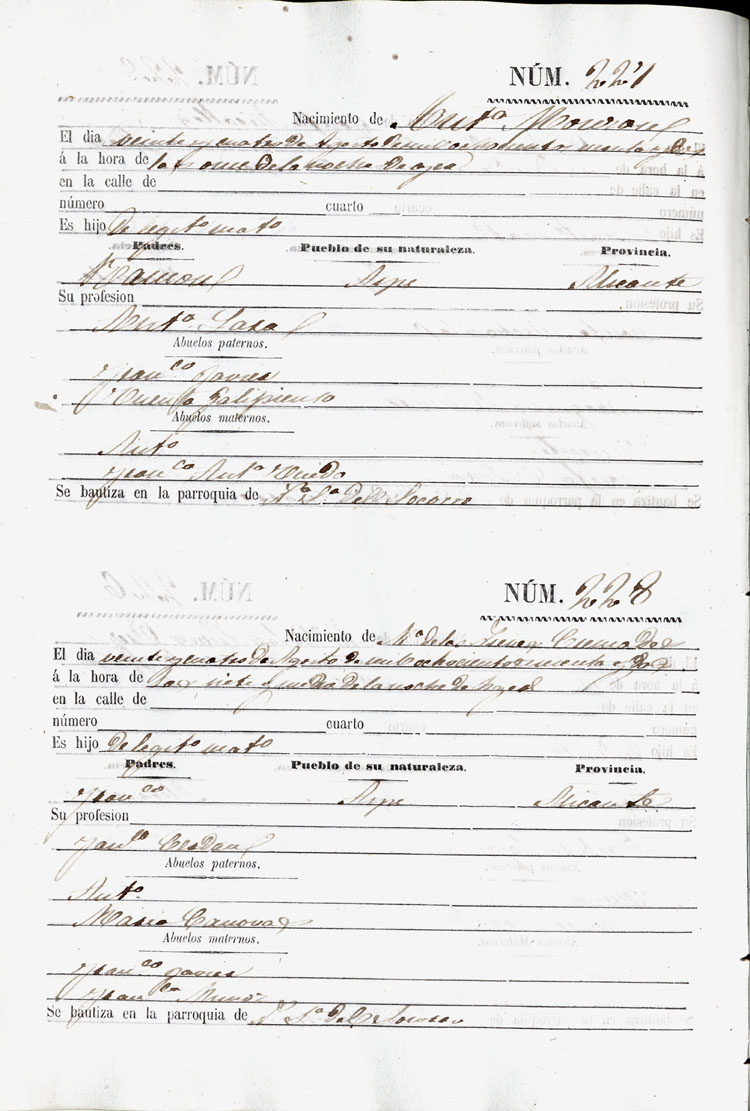 NÚM. 227
Nacimiento de Antª
El dia veinte y cuatro de Agosto de mil ochocientos y
á la hora de las once de la noche de ayer
en la calle de
número cuarto
Es hijo De legitº matº
Padres. Pueblo de su naturaleza. Provincia.
Ramon Aspe Alicante
Su profesion
Antª
Abuelos paternos.
Francº Javier
Vicenta Galipienso
Abuelos maternos.
Antº
Francᶜᵃ Antª
Se bautiza en la parroquia de Nª Sª del Socorro
NÚM. 228
Nacimiento de Mª de las Cremades
El dia veinte y cuatro de Agosto de mil ochocientos y
á la hora de las siete y media de la noche de
en la calle de
número cuarto
Es hijo De legitº matº
Padres. Pueblo de su naturaleza. Provincia.
Francᶜº Aspe Alicante
Su profesion
Abuelos paternos.
Antº
Maria Canovas
Abuelos maternos.
Francᶜº Javier
Francᶜᵃ Muñoz
Se bautiza en la parroquia de Nª Sª del Socorro